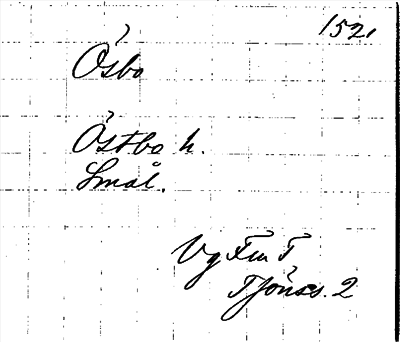 1521
Ösbo
Östbo h.
Smål.
Vg Fru T
Tjönss. 2